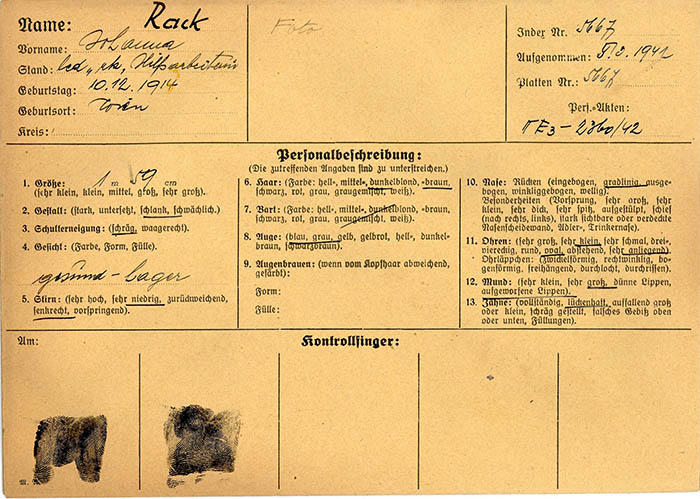 Name: Rack
Vorname: Johanna
Stand: led., rk, Hilfsarbeiterin
Geburtstag: 10.12.1914
Geburtsort: Wien
Kreis:
Foto
Index Nr. 5667
Aufgenommen: 1942
Platten Nr.: 5667
Pers.-Akten:
II E3 - 2360/42
Personalbeschreibung:
(Die zutreffenden Angaben sind zu unterstreichen.)
1. Größe: 1 m 59 cm
(sehr klein, klein, mittel, groß, sehr groß).
2. Gestalt: (stark, untersetzt, schlank, schwächlich.)
3. Schulterneigung: (schräg, waagerecht.)
4. Gesicht: (Farbe, Form, Fülle).
gesund - hager
5. Stirn: (sehr hoch, sehr niedrig, zurückweichend,
senkrecht, vorspringend).
6. Haar: (Farbe: hell-, mittel-, dunkelblond, -braun,
schwarz, rot, grau, graugemischt, weiß).
7. Bart: (Farbe: hell-, mittel-, dunkelblond, -braun,
schwarz, rot, grau, graugemischt, weiß).
8. Auge: (blau, grau, gelb, gelbrot, hell-, dunkel-
braun, schwarzbraun).
9. Augenbrauen: (wenn vom Kopfhaar abweichend,
gefärbt):
Form:
Fülle:
10. Nase: Rücken (eingebogen, gradlinig, ausge-
bogen, winkliggebogen, wellig).
Besonderheiten (Vorsprung, sehr groß, sehr
klein, sehr dick, sehr spitz, aufgestülpt, schief
(nach rechts, links), stark sichtbare oder verdeckte
Nasenscheidewand, Adler-, Trinkernase).
11. Ohren: (sehr groß, sehr klein, sehr schmal, drei-,
viereckig, rund, oval, abstehend, sehr anliegend)
Ohrläppchen: (zwickelförmig, rechtwinklig, bo-
genförmig, freihängend, durchlocht, durchrissen).
12. Mund: (sehr klein, sehr groß, dünne Lippen,
aufgeworfene Lippen).
13. Zähne: (vollständig, lückenhaft, auffallend groß
oder klein, schräg gestellt, falsches Gebiß oben
oder unten, Füllungen).
Am:
Kontrollfinger: